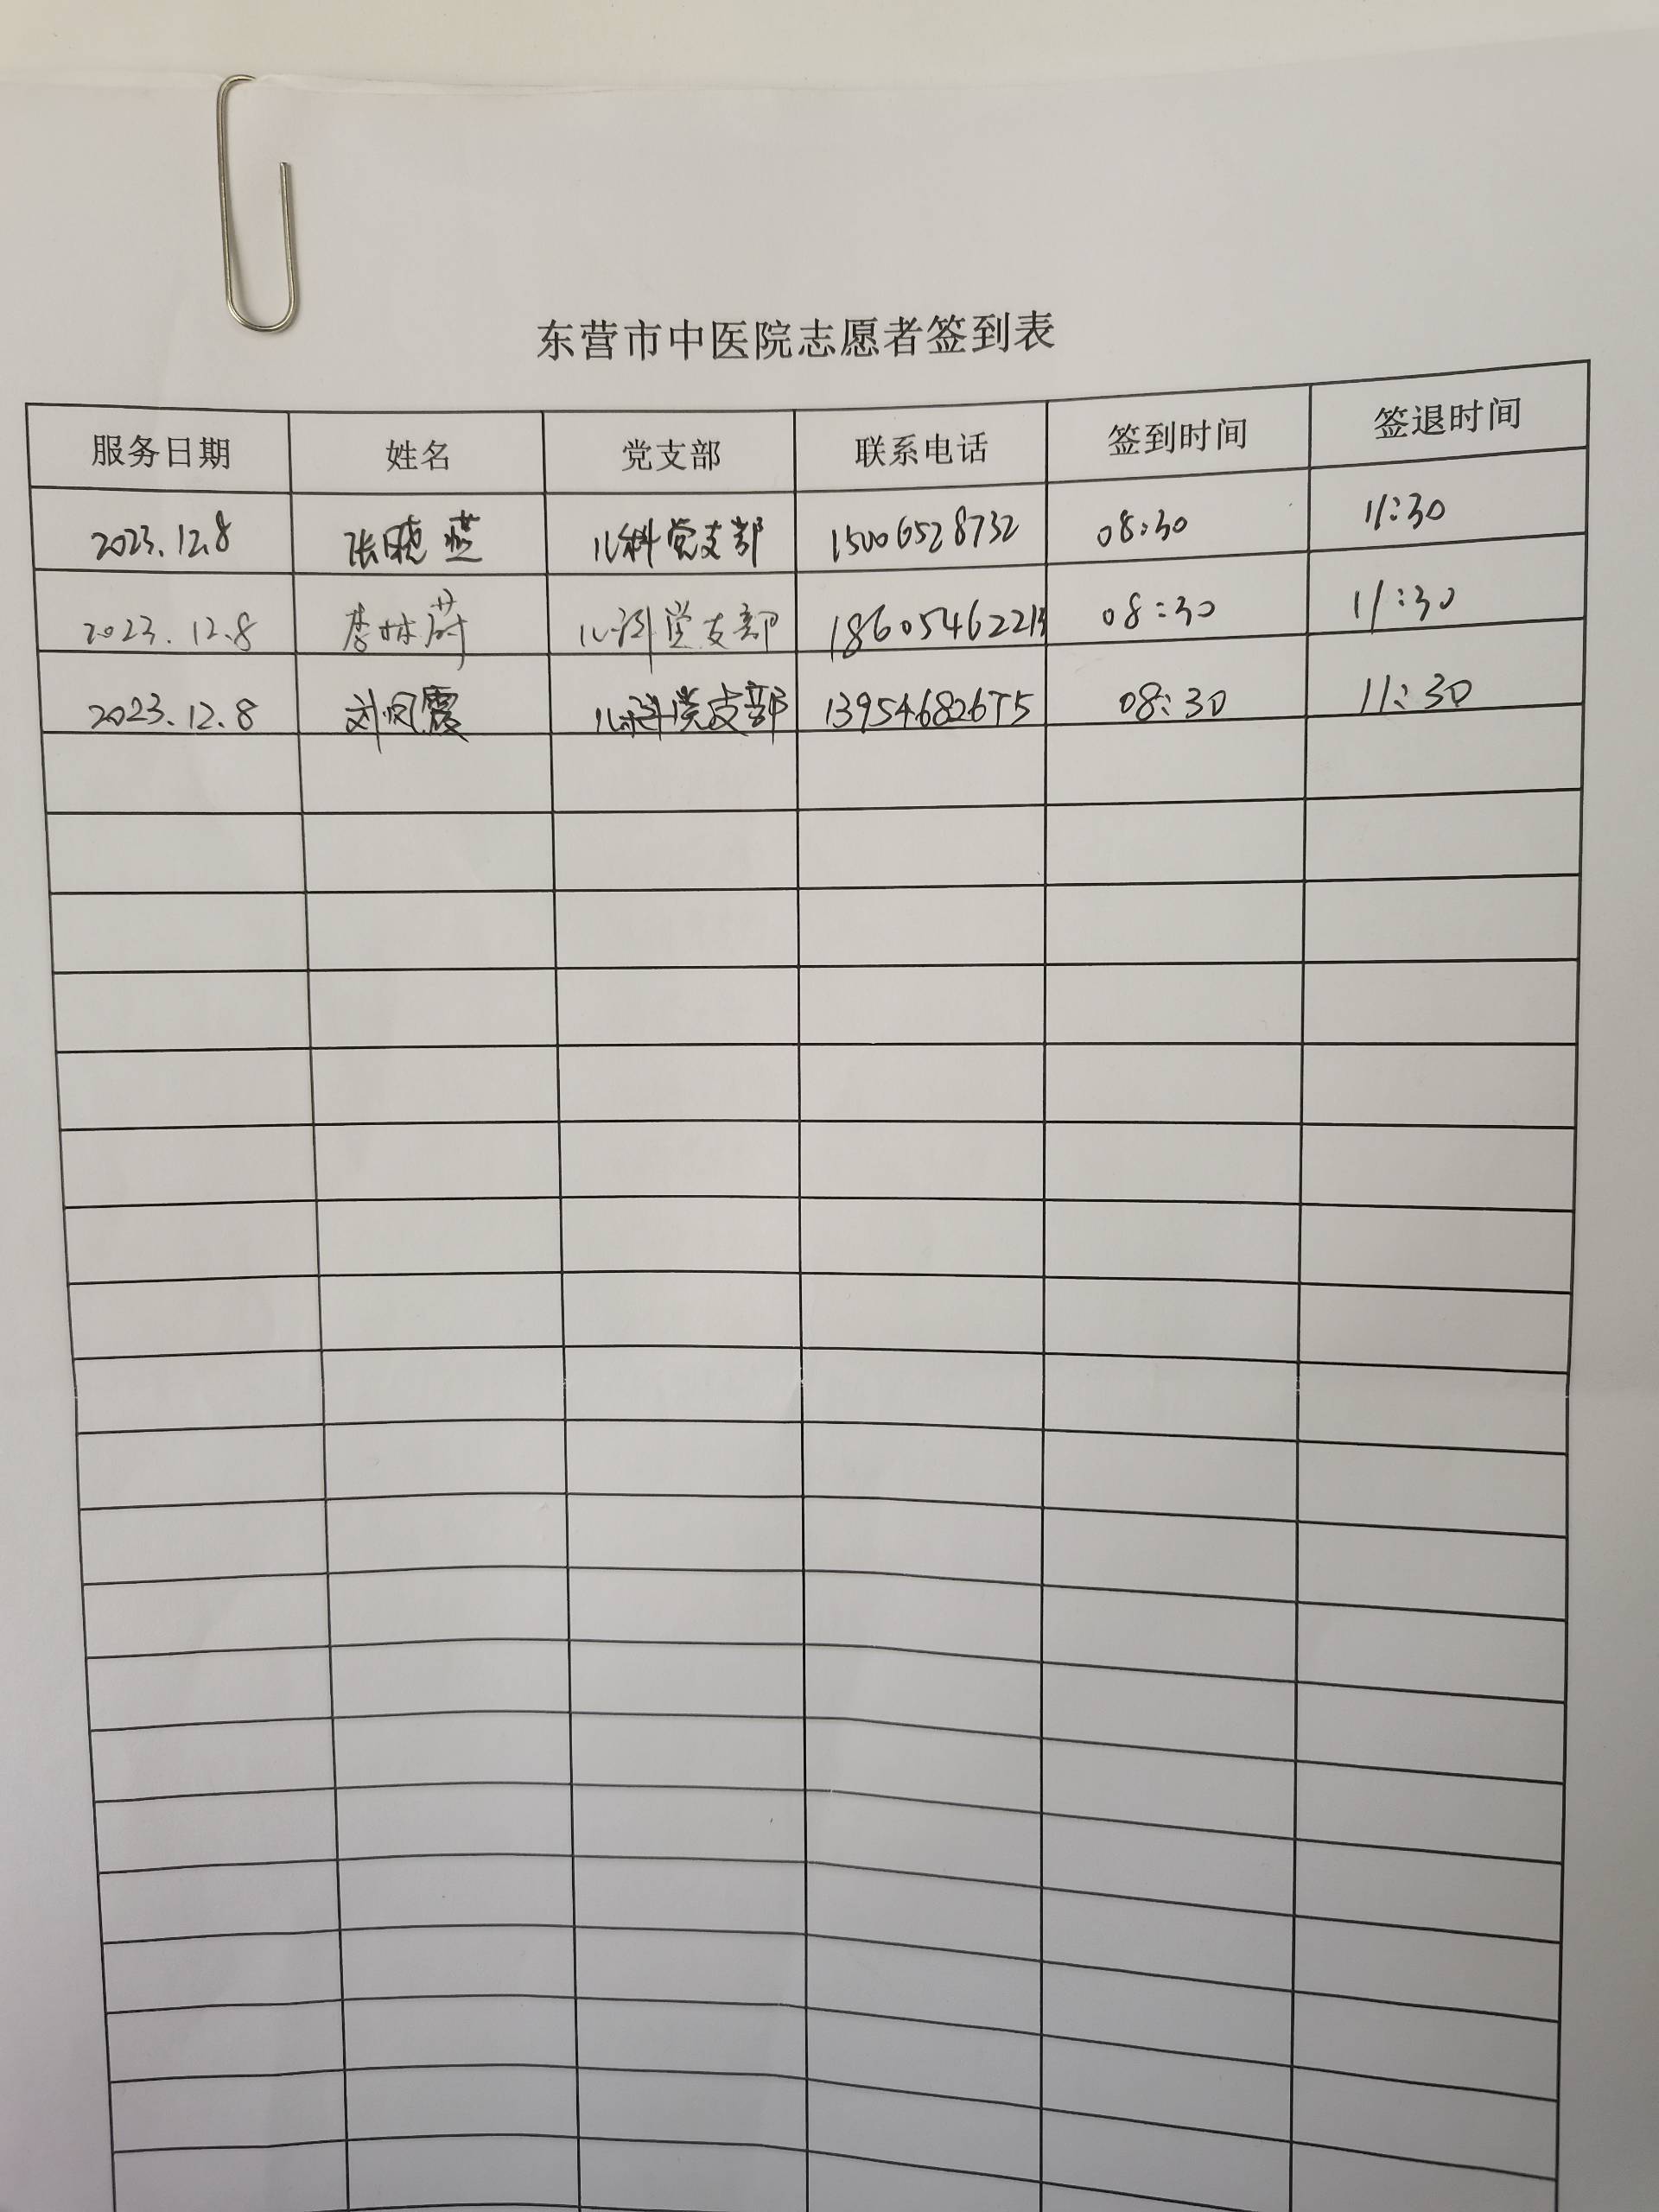 东营市中医院志愿者签到表
服务日期 姓名 党支部 联系电话 签到时间 签退时间
2023.12.8 张晓燕 儿科党支部 15006528732 08:30 11:30
2023.12.8 李林蔚 儿科党支部 186054622 08:30 11:30
2023.12.8 刘凤霞 儿科党支部 13954682675 08:30 11:30